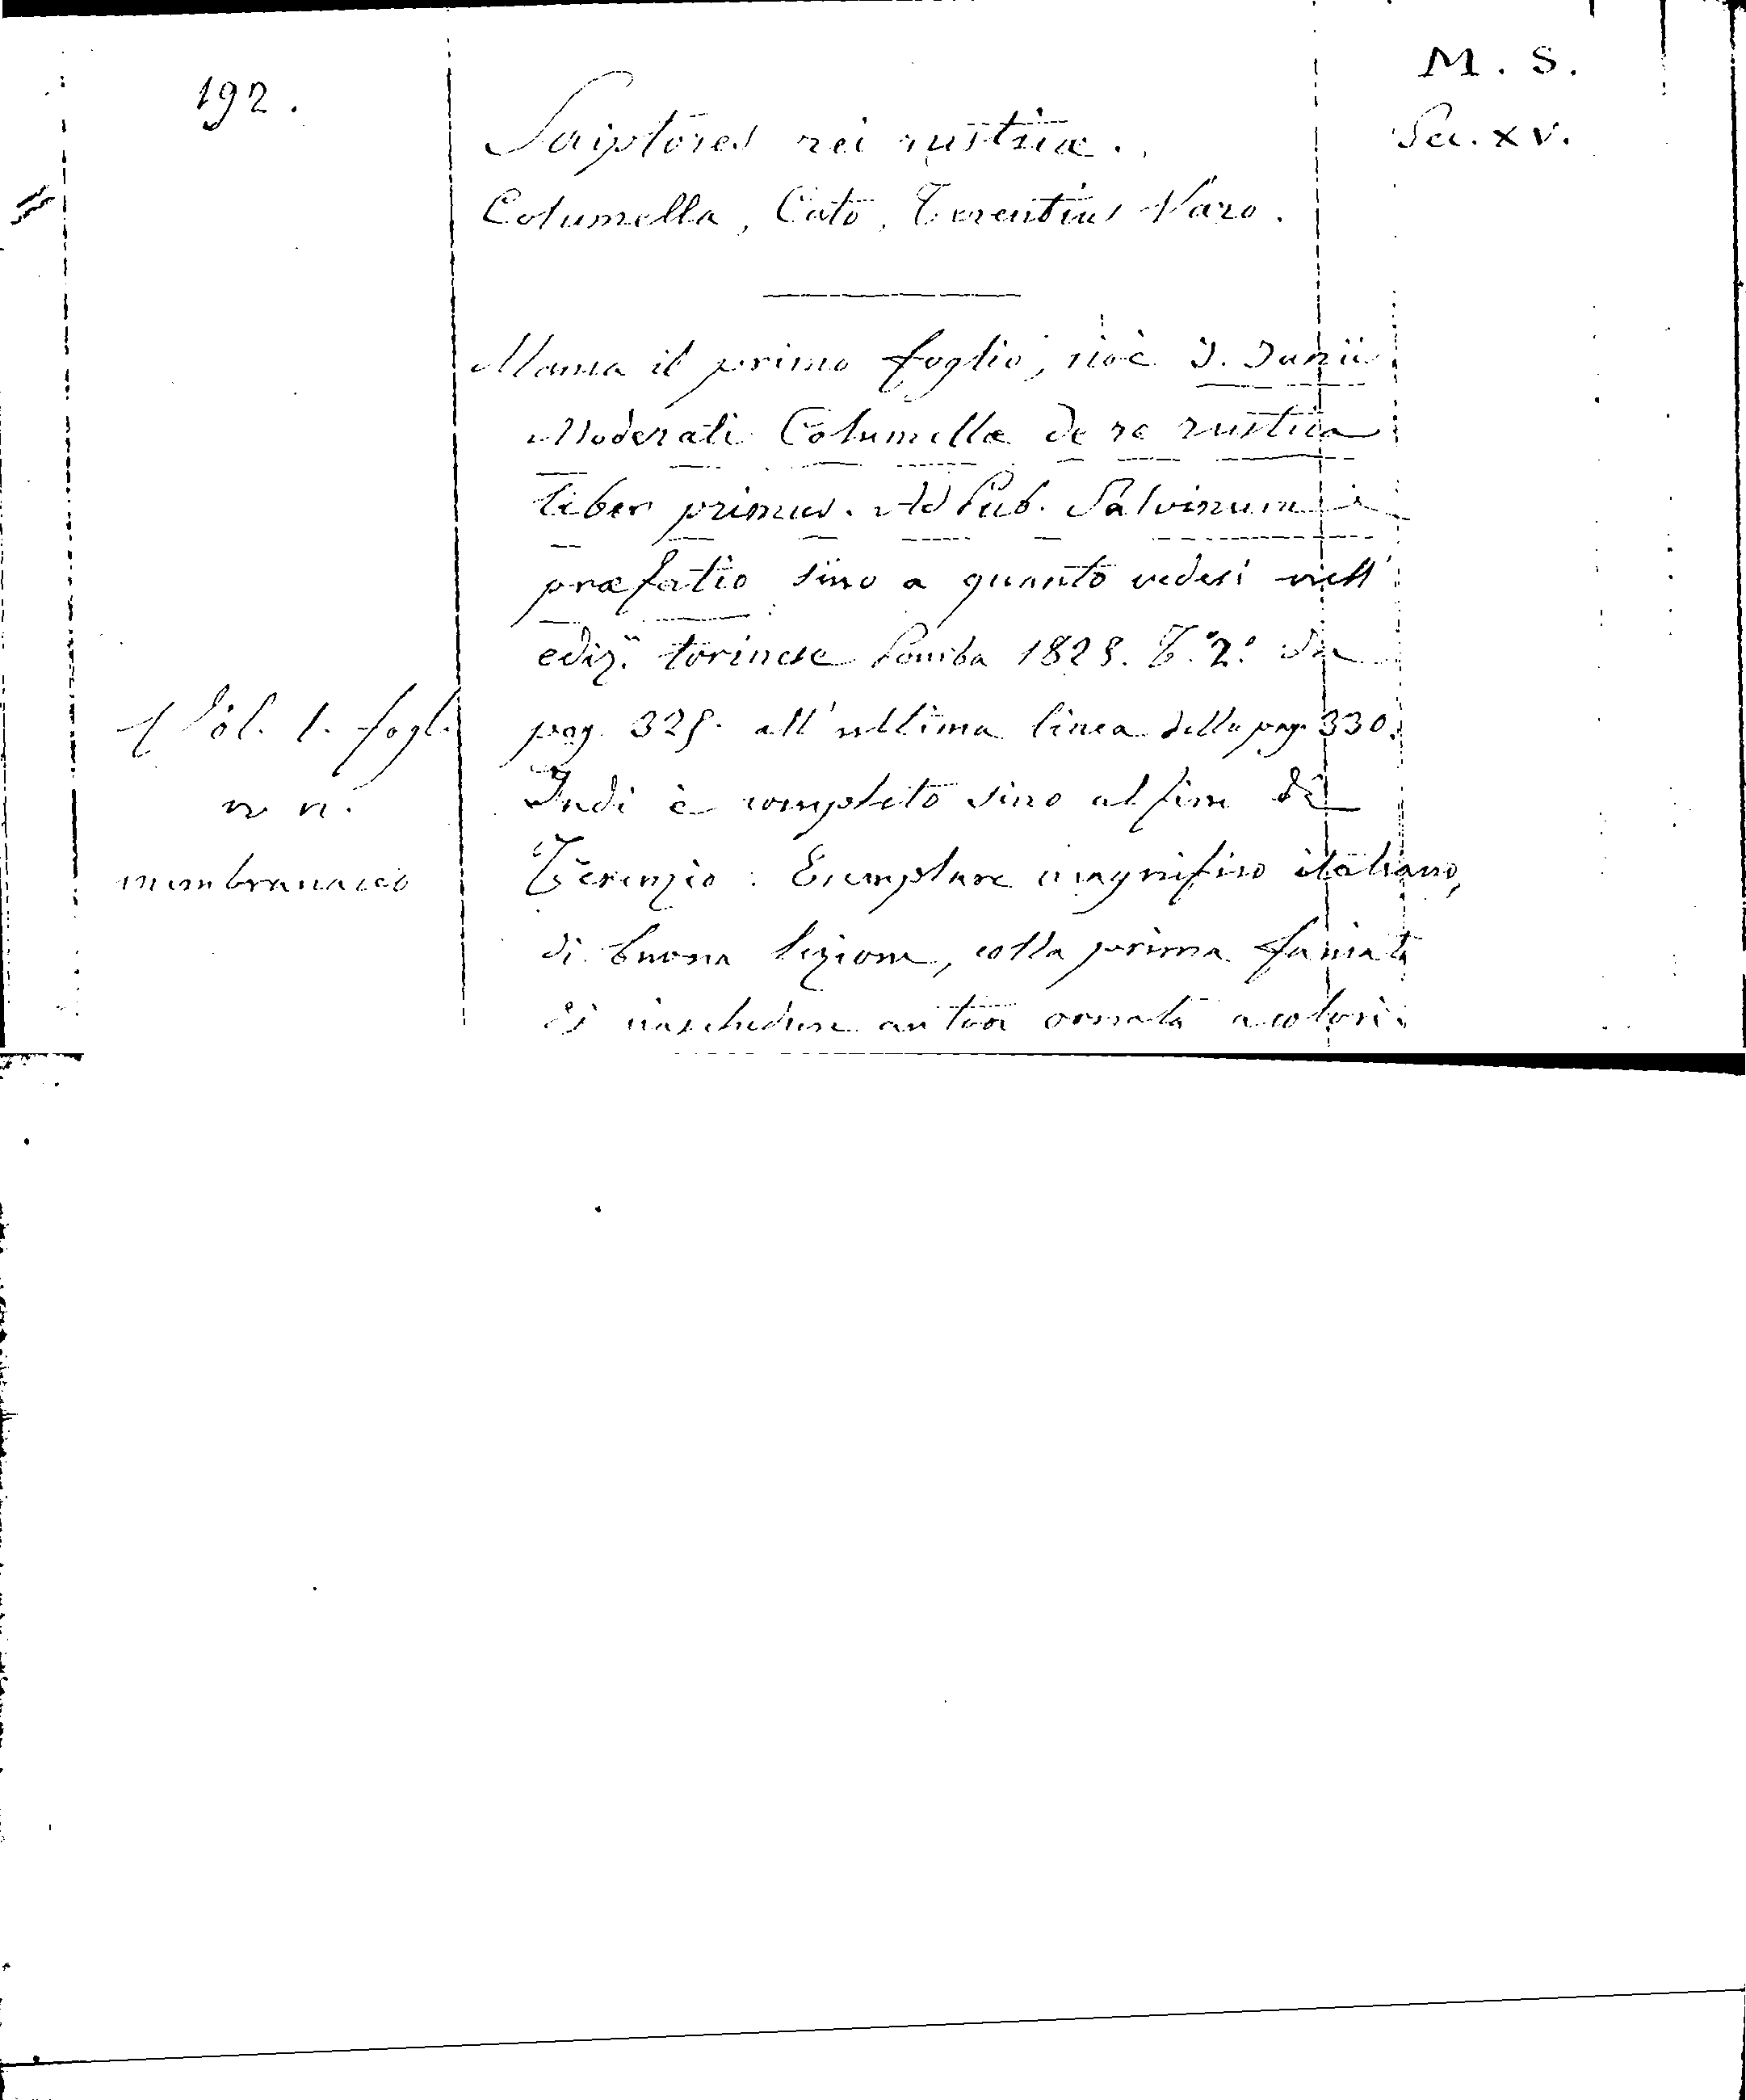 192.
M. S.
Sec. XV.
Scriptores rei rusticæ.
Columella, Cato, Terentius Varo.
Manca il primo foglio, cioè I. Junii
Moderati Columellæ de re rustica
liber primus. Ad Pub. Salvinum
præfatio sino a quanto vedesi nell'
ediz. torinese Pomba 1828. T. 2.º da
pag. 325. all'ultima linea della pag. 330.
Indi è completo sino al fine di
Terenzio. Esemplare magnifico italiano,
di buona lezione, colla prima facciata
di inchiudere antica ornata a colori.
1 Vol. 1. fogl.
n n.
membranaceo